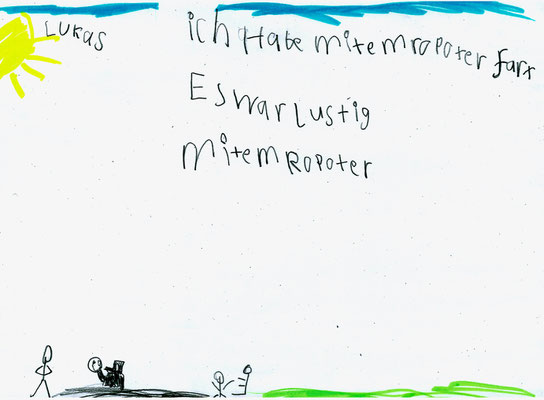 LUKAS
ich Hate mitemropoter fart
Eswarlustig
mitemRopoter